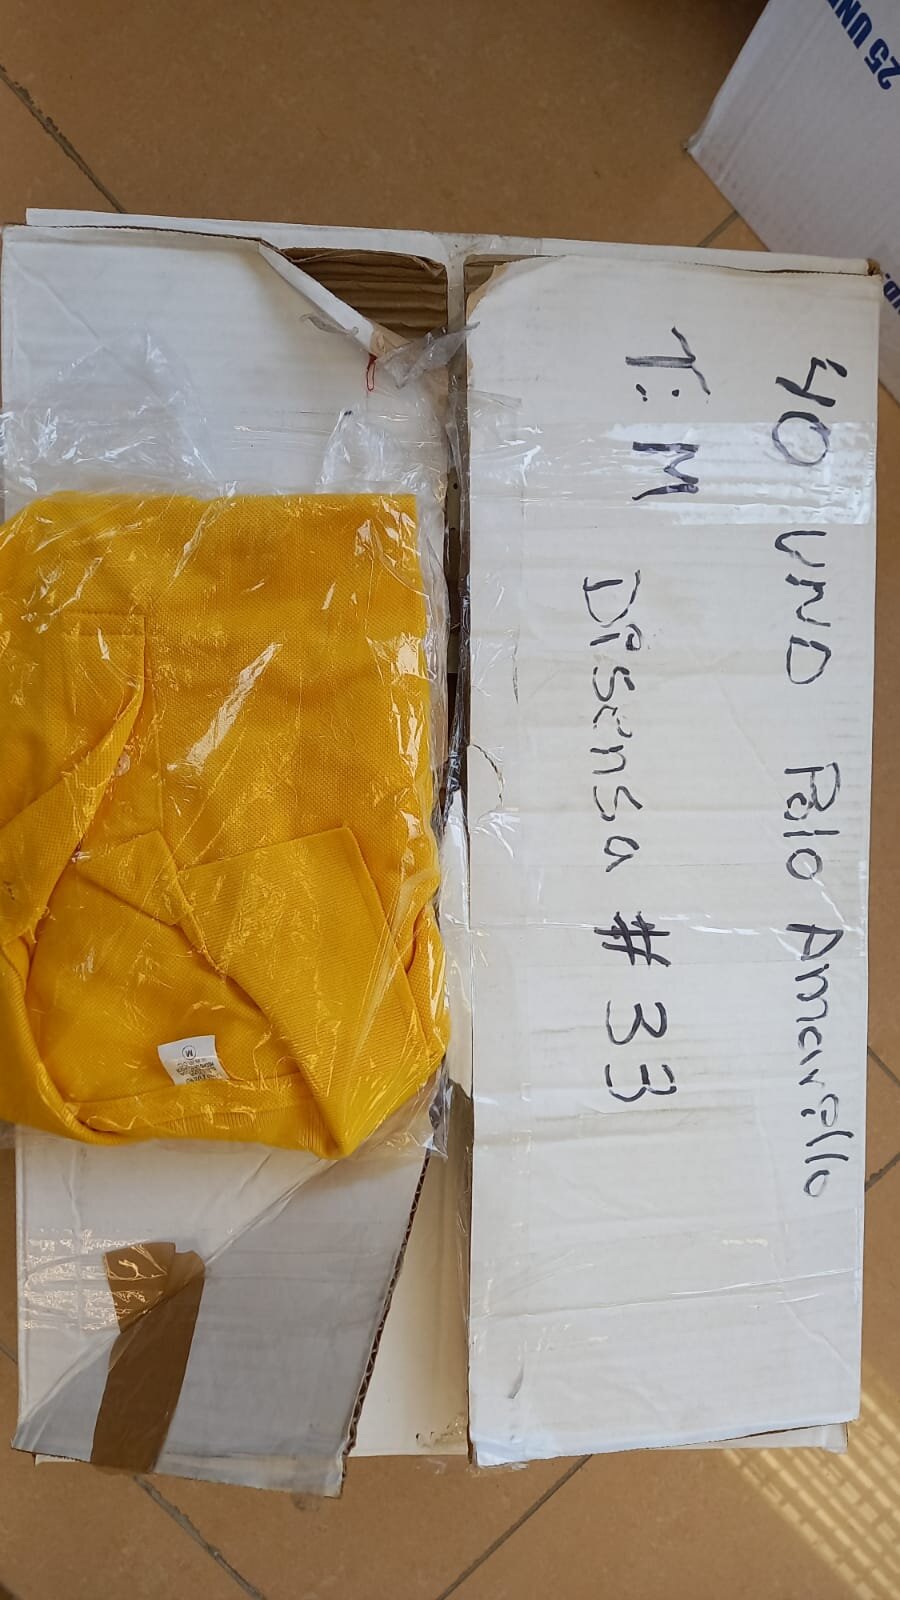 40 UND Polo Amarello
T: M
Disensa # 33
M
25 UN